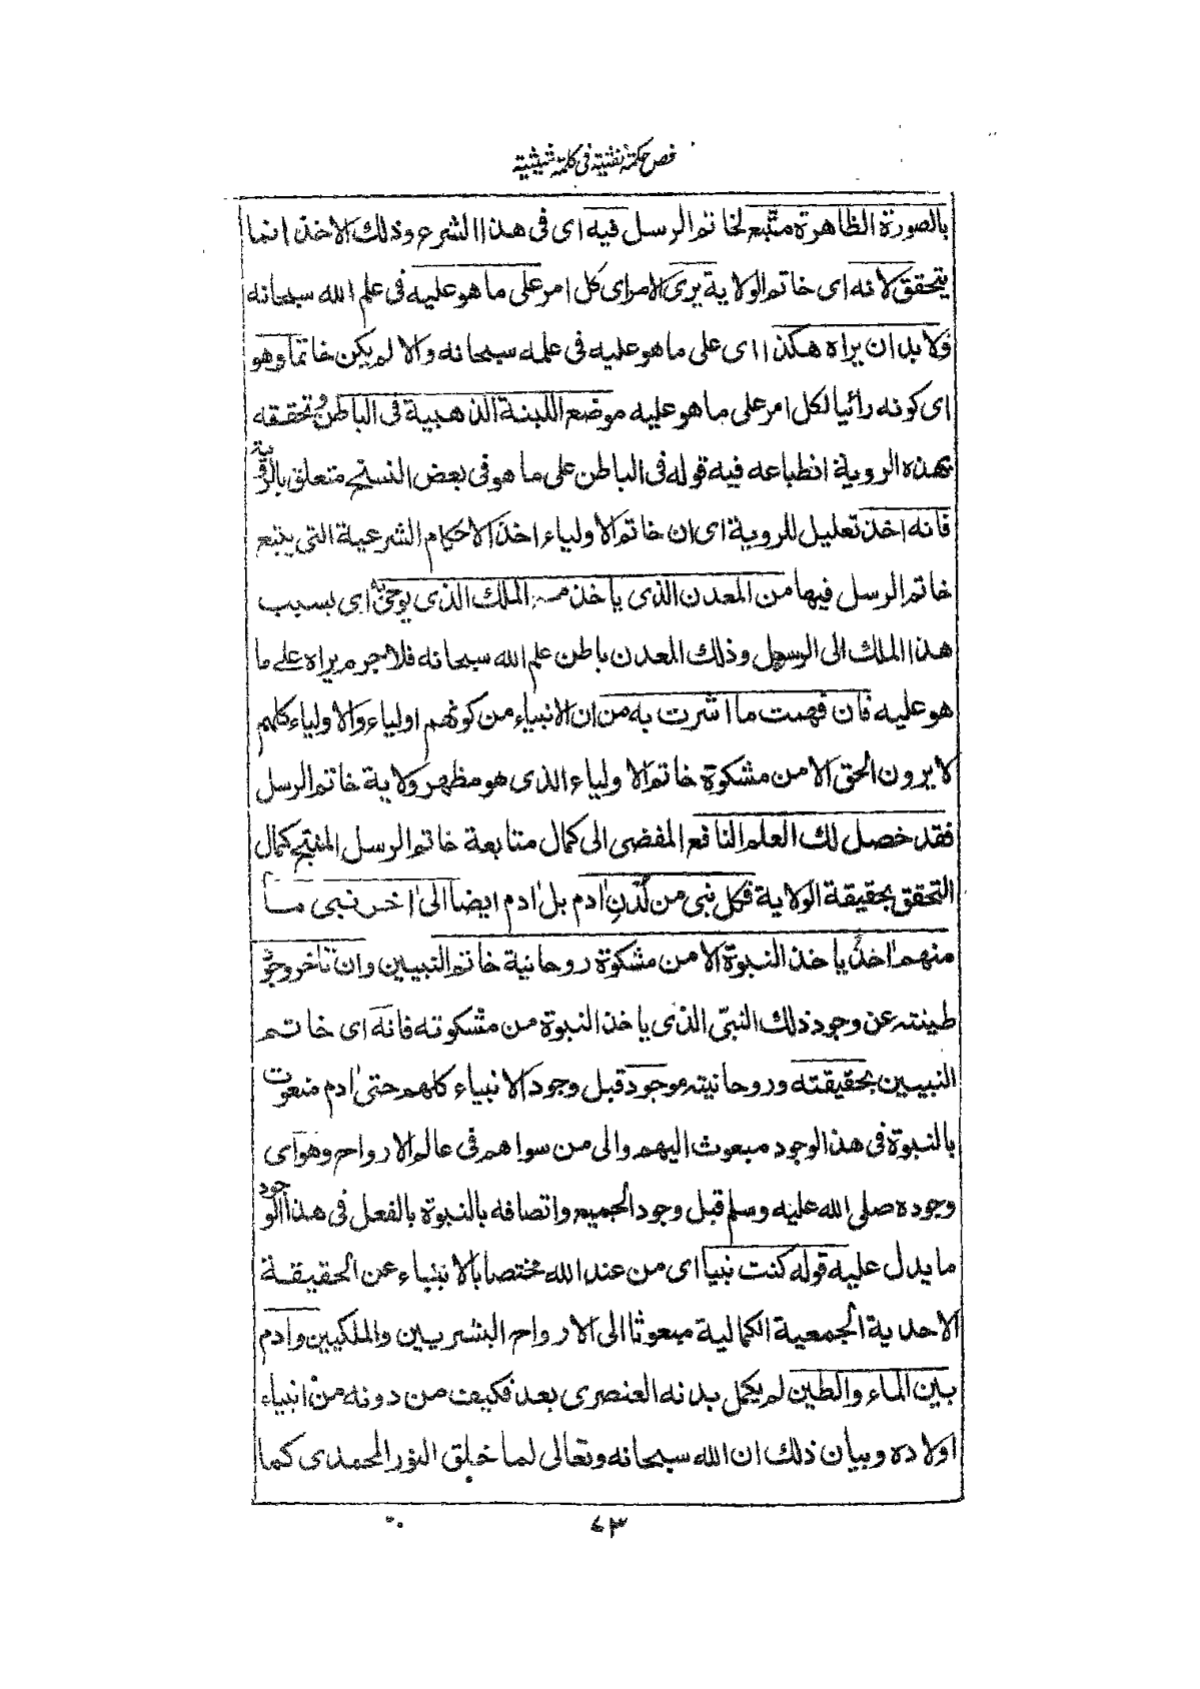 فص حكمة نفثية فى كلمة شيثية
بالصورة الظاهرة متبع لخاتم الرسل فيه اى فى هذا الشرع وذلك الاخذ انما
يتحقق لانه اى خاتم الولاية يرى الامر اى كل امر على ما هو عليه فى علم الله سبحانه
ولا بد ان يراه هكذا اى على ما هو عليه فى علمه سبحانه والا لم يكن خاتما وهو
اى كونه رائيا لكل امر على ما هو عليه موضع اللبنة الذهبية فى الباطن وتحققه
بهذه الروية انطباعه فيه قوله فى الباطن على ما هو فى بعض النسخ متعلق بالرؤية
فانه اخذ تعليل للروية اى ان خاتم الاولياء اخذ الاحكام الشرعية التى يتبع
خاتم الرسل فيها من المعدن الذى ياخذ منه الملك الذى يوحى به اى بسبب
هذا الملك الى الرسول وذلك المعدن باطن علم الله سبحانه فلا جرم يراه على ما
هو عليه فان فهمت ما اشرت به من ان الانبياء من كونهم اولياء والاولياء كلهم
لا يرون الحق الا من مشكوة خاتم الاولياء الذى هو مظهر ولاية خاتم الرسل
فقد حصل لك العلم النافع المفضى الى كمال متابعة خاتم الرسل المنتج كمال
التحقق بحقيقة الولاية فكل نبى من لدن ادم بل ادم ايضا الى اخر نبى ما
منهم احد ياخذ النبوة الا من مشكوة روحانية خاتم النبيين وان تاخر وجود
طينته عن وجود ذلك النبى الذى ياخذ النبوة من مشكوته فانه اى خاتم
النبيين بحقيقته وروحانيته موجود قبل وجود الانبياء كلهم حتى ادم منعوت
بالنبوة فى هذا الوجود مبعوث اليهم والى من سواهم فى عالم الارواح وهو اى
وجوده صلى الله عليه وسلم قبل وجود الجميع واتصافه بالنبوة بالفعل فى هذا الوجود
ما يدل عليه قوله كنت نبيا اى من عند الله مختصا بالانباء عن الحقيقة
الاحدية الجمعية الكمالية مبعوثا الى الارواح البشريين والملكيين وادم
بين الماء والطين لم يكمل بدنه العنصرى بعد فكيف من دونه من انبياء
اولاده وبيان ذلك ان الله سبحانه وتعالى لما خلق النور المحمدى كما